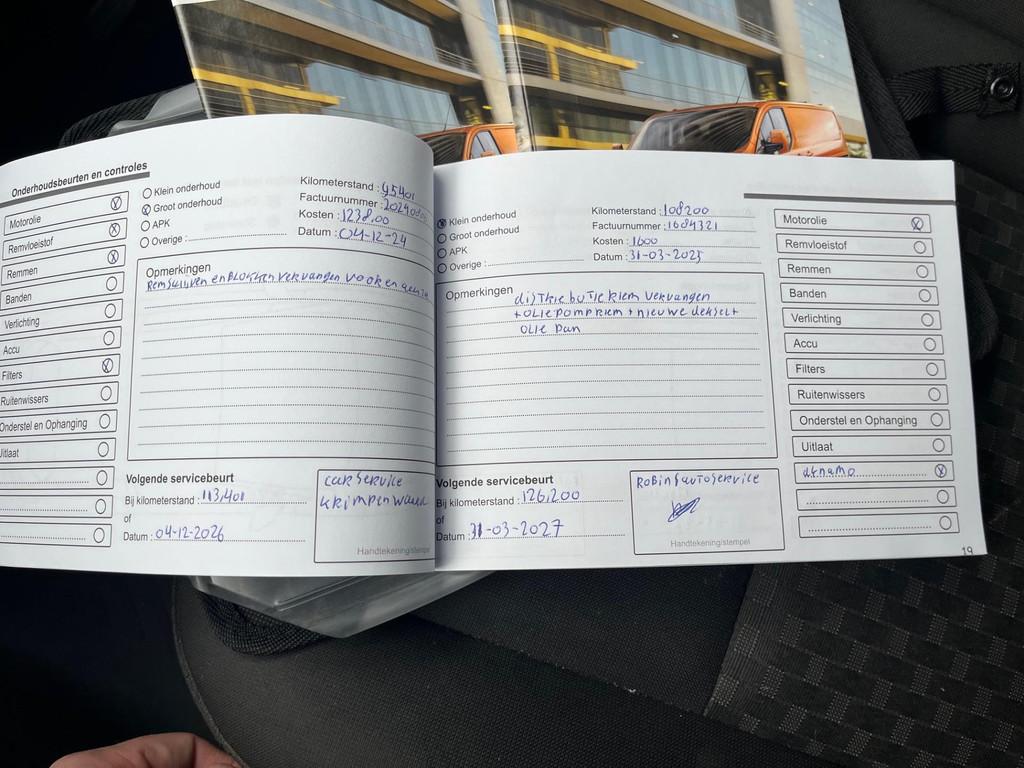 Onderhoudsbeurten en controles
Motorolie
Remvloeistof
Remmen
Banden
Verlichting
Accu
Filters
Ruitenwissers
Onderstel en Ophanging
Uitlaat
Klein onderhoud
Groot onderhoud
APK
Overige :
Kilometerstand : 95401
Factuurnummer :
Kosten : 1238.00
Datum : 04-12-24
Opmerkingen
Remschijven en Blokken vervangen voor en
Volgende servicebeurt
Bij kilometerstand : 113,401
of
Datum : 04-12-2026
car service
krimpenwaard
Handtekening/stempel
Klein onderhoud
Groot onderhoud
APK
Overige :
Kilometerstand : 108200
Factuurnummer : 1684321
Kosten : 1600
Datum : 31-03-2025
Opmerkingen
distributieriem vervangen
+ oliepompriem + nieuwe deksel +
olie pan
Volgende servicebeurt
Bij kilometerstand : 126,200
of
Datum : 31-03-2027
Robinsautoservice
Handtekening/stempel
Motorolie
Remvloeistof
Remmen
Banden
Verlichting
Accu
Filters
Ruitenwissers
Onderstel en Ophanging
Uitlaat
dynamo
19